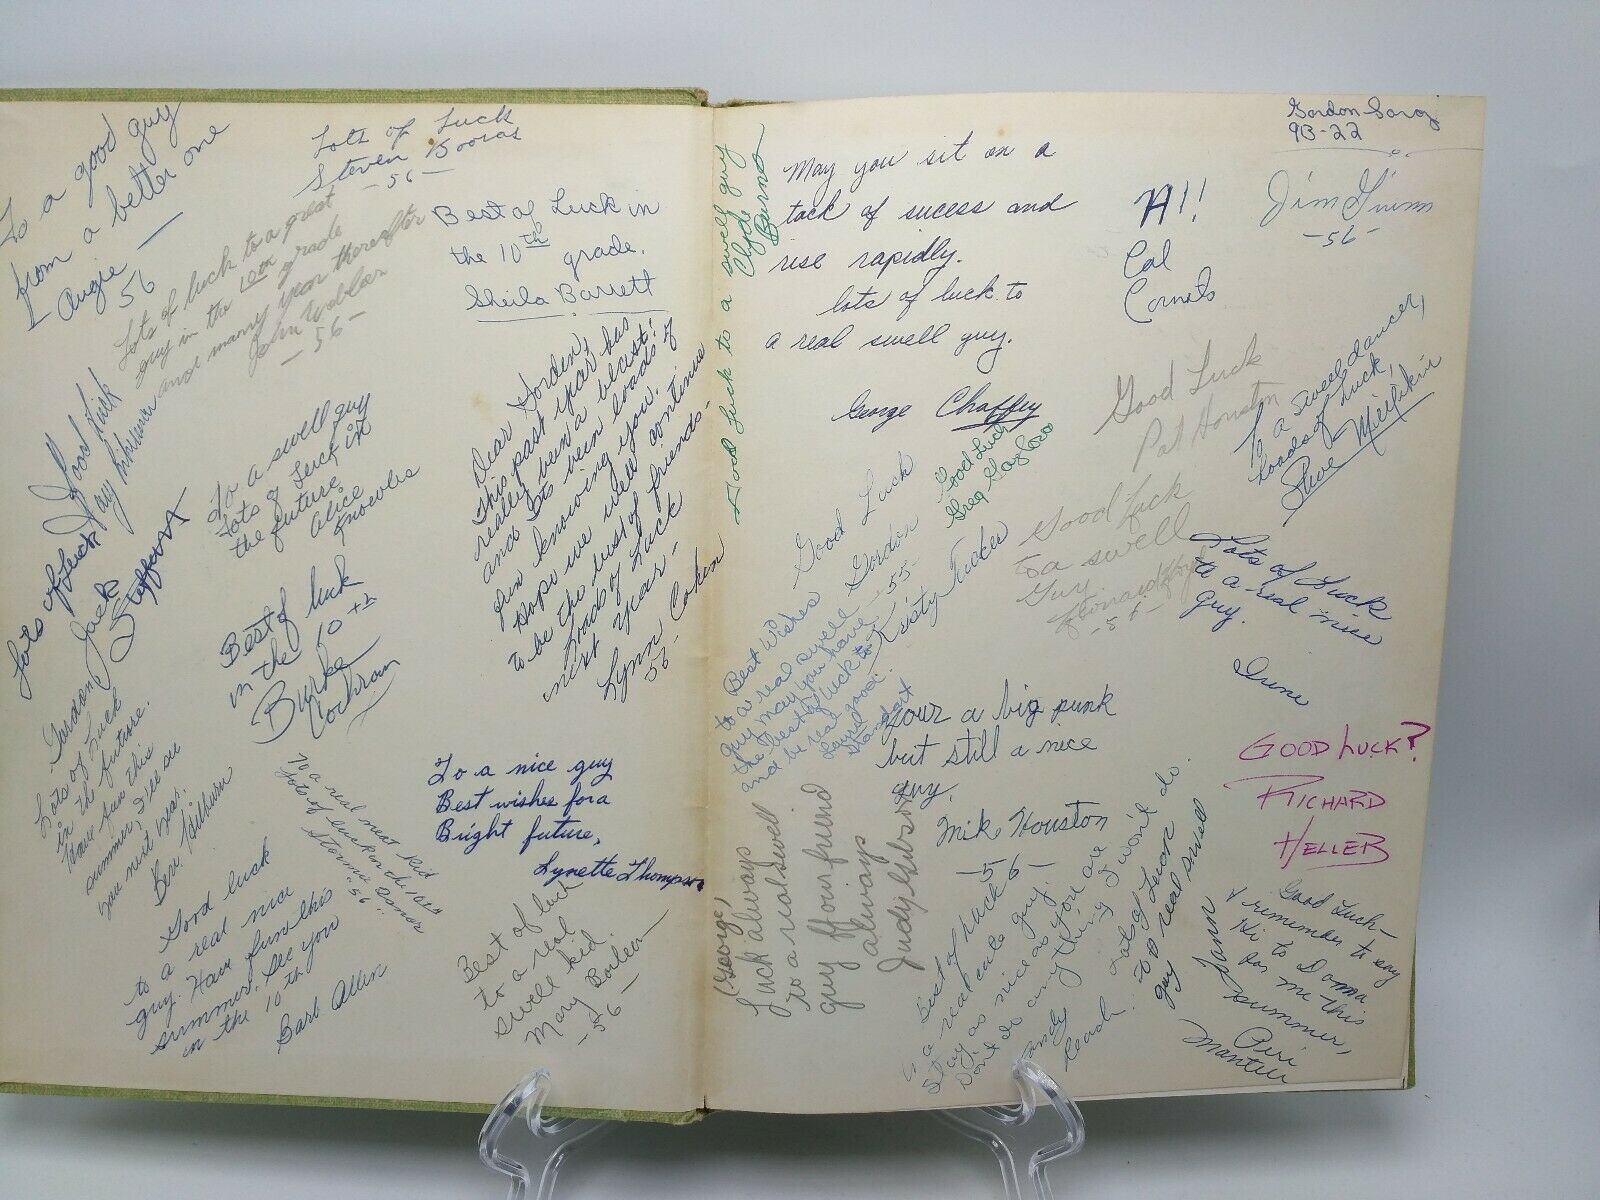 To a good guy
from a better one
Augie
56
Lots of Luck
Steven
-56-
Lots of luck to a great
guy in the 10th grade
and many year thereafter
John
-56-
Best of Luck in
the 10th grade.
Sheila Barrett
Good luck
Lots of Luck
Jack
Stafford
To a swell guy
Lots of Luck in
the future
Alice
Knowles
Dear Gordon,
This past year has
really been a blast!
and its been loads of
fun knowing you.
Hope we will continue
to be the best of friends-
Loads of Luck
next year-
Lynn Cohen
56-
Best of luck
in the 10th
Burke
Cochran
Gordon,
Lots of Luck
in the future.
Have fun this
summer, I'll see
you next year.
Bev.
To a real neat kid
Lots of luck in the 10th
56
To a nice guy
Best wishes for a
Bright future,
Lynette Thompson
Good luck
to a real nice
guy. Have fun this
summer. See you
in the 10th
Barb Allen
Best of luck
to a real
swell kid.
Mary
-56-
Good luck to a swell guy
Clyde
Burns
May you sit on a
tack of sucess and
rise rapidly.
lots of luck to
a real swell guy.
George Chaffey
Gordon
93-22
Hi!
Cal
Jim
-56-
Good Luck
Pat Houston
To a swell dancer,
loads of luck,
Good Luck
Greg
Good Luck
Gordon
-55-
Kristy Tucker
Good Luck
to a swell
Guy
-56-
Lots of Luck
to a real nice
guy.
Irene
Best Wishes
to a real swell
guy may you have
the best of luck
and be real good.
Your a big punk
but still a nice
guy.
Mike Houston
-56-
GOOD LUCK?
RICHARD
HELLER
(George,
Luck always
to a real swell
guy & your friend
always
always
Judy Gibson
Best of luck
to a real cute guy
Stay as nice as you are
Don't do anything I won't do.
Lots of Luck
to a real swell
guy
Jann
Good Luck-
& remember to say
Hi to Donna
for me this
summer,
Peri